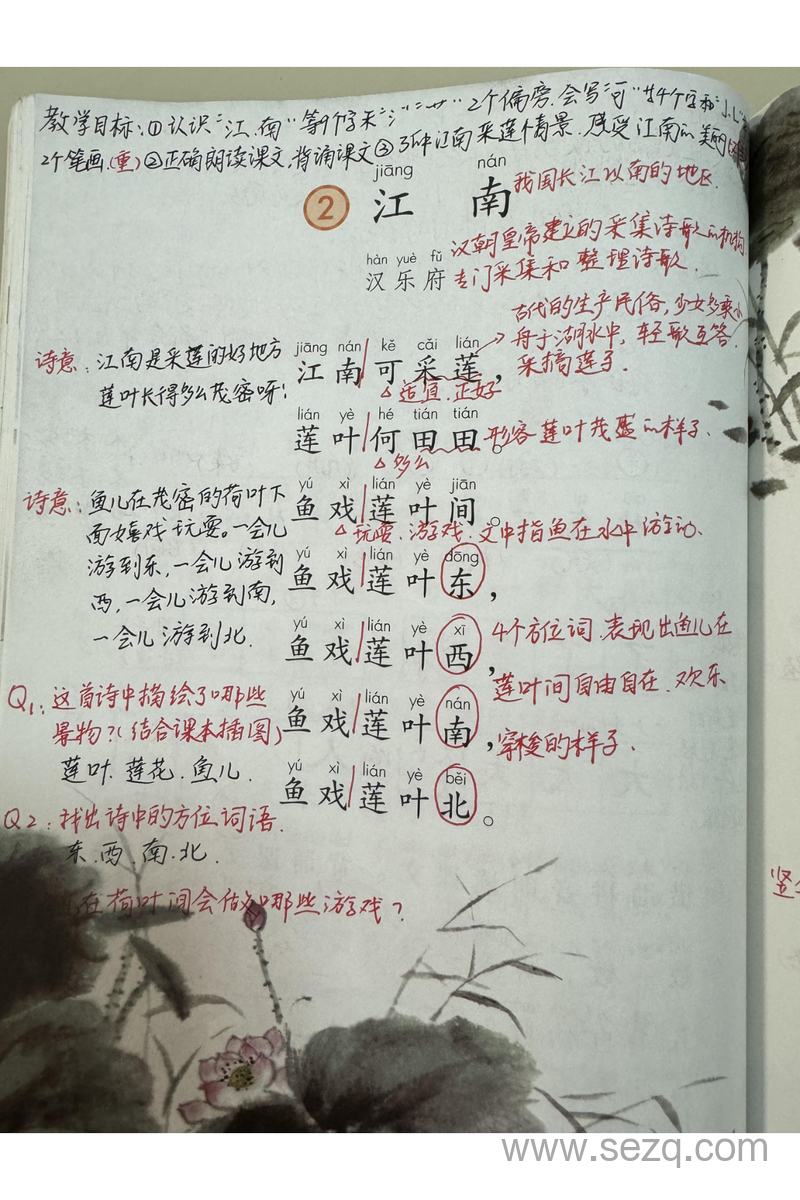 教学目标:①认识"江、南"等9个字和"氵""艹"2个偏旁.会写"可"等4个字和
2个笔画.(重)②正确朗读课文,背诵课文③了解江南采莲情景.感受江南的美丽
jiāng nán
② 江 南 我国长江以南的地区.
hàn yuè fǔ
汉 乐 府
汉朝皇帝建立的采集诗歌的机构
专门采集和整理诗歌.
古代的生产民俗,少女多乘小
舟于湖水中,轻歌互答.
采摘莲子.
诗意:江南是采莲的好地方
莲叶长得多么茂密呀!
jiāng nán kě cǎi lián
江 南 可 采 莲,
△适宜.正好
lián yè hé tián tián
莲 叶 何 田 田。形容莲叶茂盛的样子.
△多么
诗意:鱼儿在茂密的荷叶下
面嬉戏玩耍。一会儿
游到东,一会儿游到
西,一会儿游到南,
一会儿游到北.
yú xì lián yè jiān
鱼 戏 莲 叶 间。
△玩耍.游戏.文中指鱼在水中游动.
yú xì lián yè dōng
鱼 戏 莲 叶 东,
yú xì lián yè xī
鱼 戏 莲 叶 西,
yú xì lián yè nán
鱼 戏 莲 叶 南,
yú xì lián yè běi
鱼 戏 莲 叶 北。
4个方位词.表现出鱼儿在
莲叶间自由自在.欢乐
穿梭的样子.
Q1:这首诗中描绘了哪些
景物?(结合课本插图)
莲叶.莲花.鱼儿.
Q2:找出诗中的方位词语.
东.西.南.北.
在荷叶间会做哪些游戏?
竖
www.sezq.com